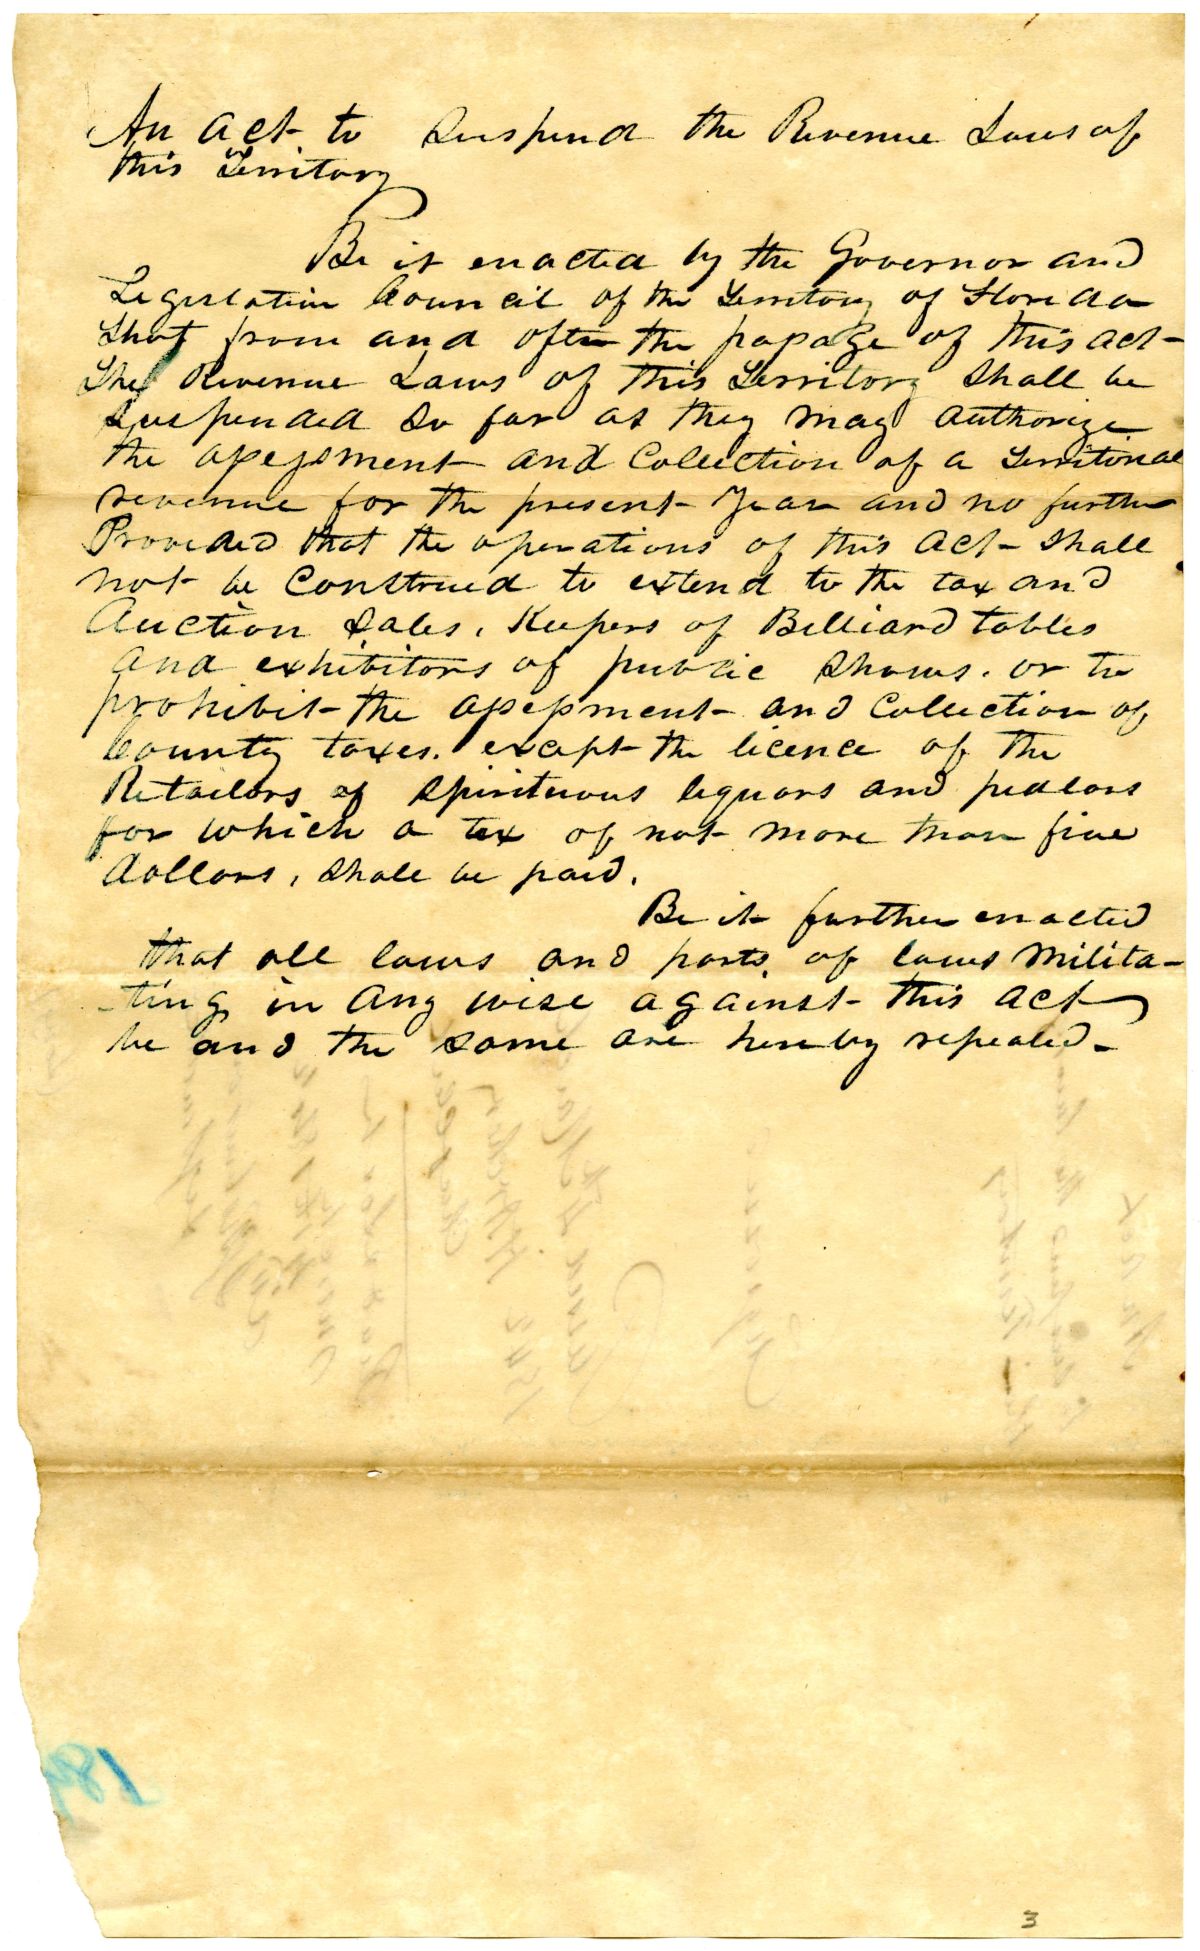 An act to Suspend the Revenue Laws of
this Territory
Be it enacted by the Governor and
Legislative Council of the Territory of Florida
That from and after the passage of this act
The Revenue Laws of this Territory Shall be
Suspended So far as they may authorize
the assessment and Collection of a Territorial
revenue for the present Year and no further
Provided that the operations of this act Shall
not be Construed to extend to the tax and
Auction Sales, Keepers of Billiard tables
and exhibitors of public Shows. or to
prohibit the assessment and Collection of
County taxes. except the licence of the
Retailors of Spirituous liquors and pedlors
for which a tax of not more than five
dollars, Shall be paid.
Be it further enacted
that all laws and parts of laws milita-
-ting in any wise against this act
be and the same are hereby repealed-
3